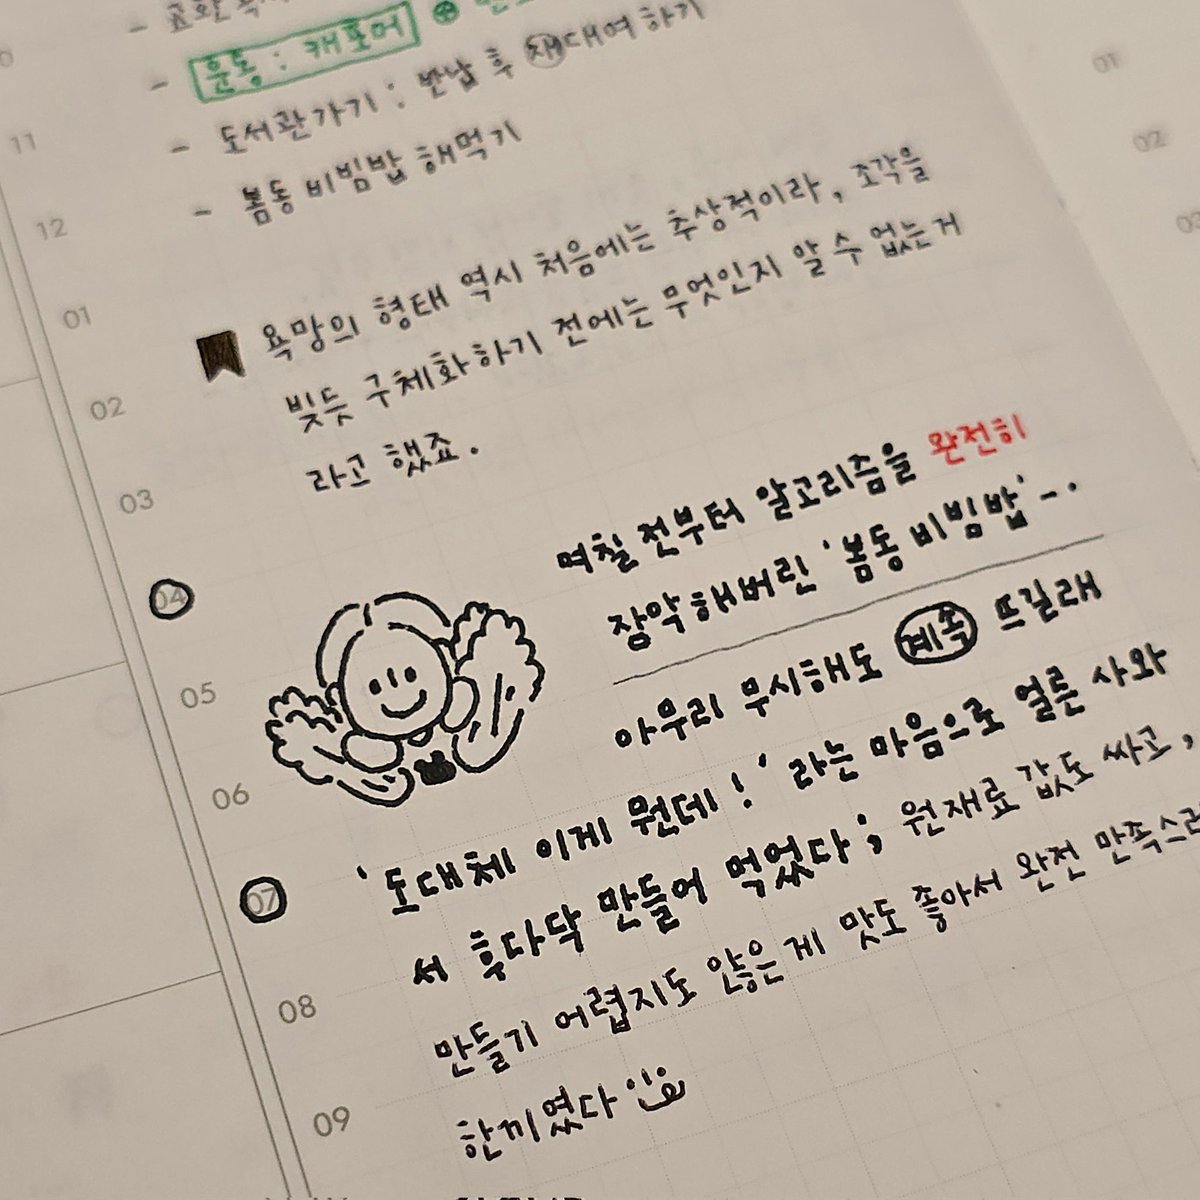 -
- 운동 : 캐포어 ⊕
- 도서관가기 : 반납 후 재대여하기
- 봄동 비빔밥 해먹기
욕망의 형태 역시 처음에는 추상적이라, 조각을
빚듯 구체화하기 전에는 무엇인지 알 수 없는거
라고 했죠.
며칠 전부터 알고리즘을 완전히
장악해버린 '봄동 비빔밥'-..
아무리 무시해도 계속 뜨길래
'도대체 이게 뭔데!' 라는 마음으로 얼른 사와
서 후다닥 만들어 먹었다; 원재료 값도 싸고,
만들기 어렵지도 않은게 맛도 좋아서 완전 만족스러
한끼였다
11
12
01
02
03
04
05
06
07
08
09
01
02
03